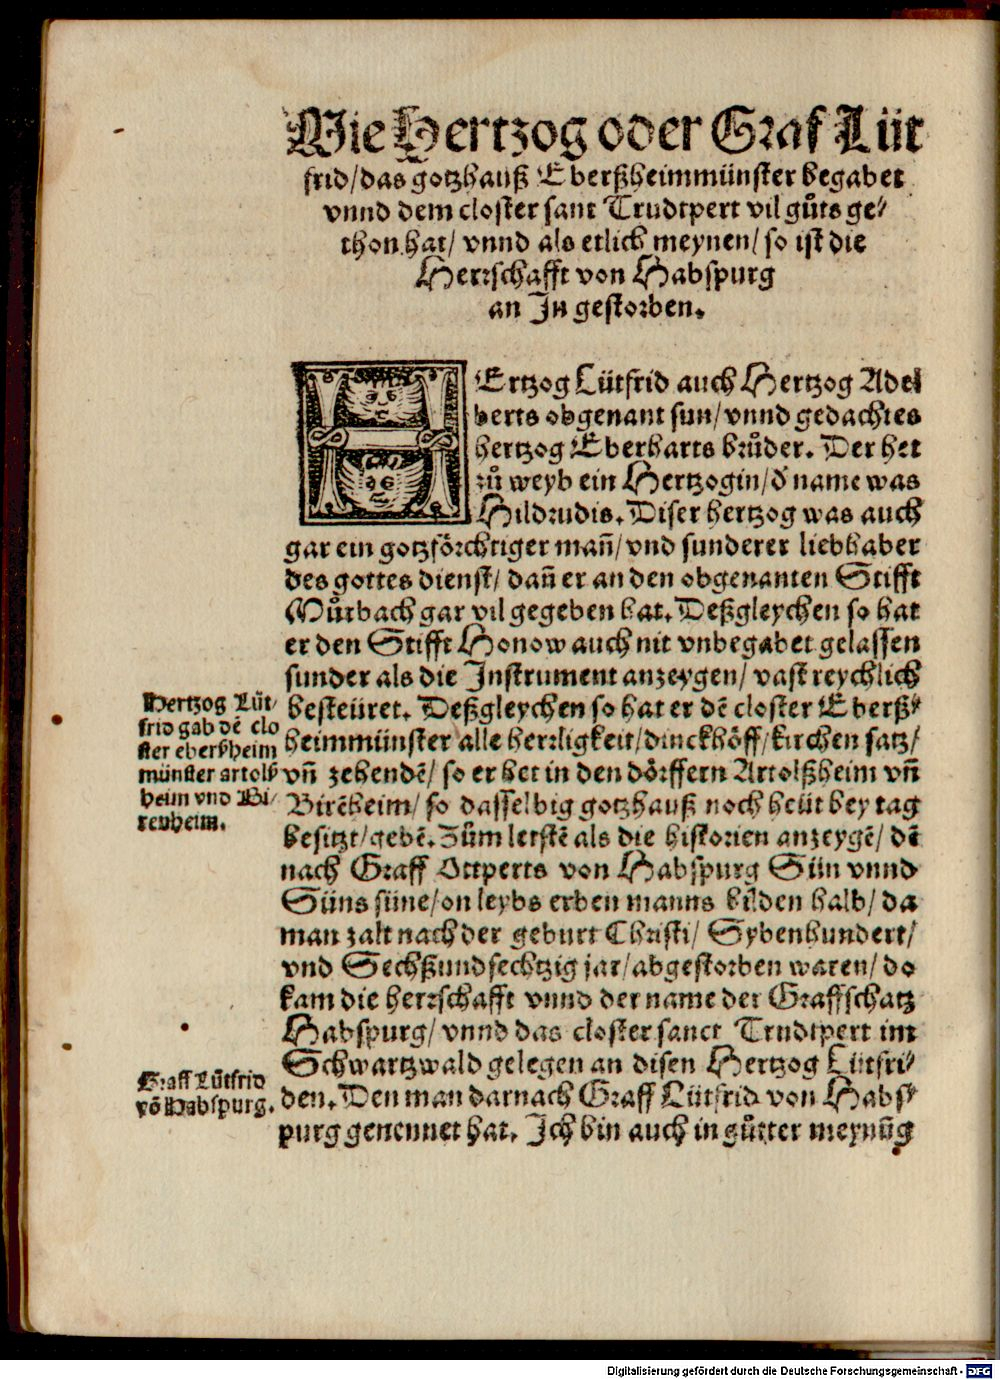 Wie Hertzog oder Graf Lüt
frid/das gotzhauß Eberßheimmünster begabet
vnnd dem closter sant Trudtpert vil gůts ge⸗
thon hat/ vnnd als etlich meynen/ so ist die
Herrschafft von Habspurg
an In gestorben.
HErtzog Lütfrid auch Hertzog Adel
berts obgenant sun/ vnnd gedachtes
hertzog Eberharts brůder. Der het
zů weyb ein Hertzogin/ d̕ name was
Hildrudis. Diser hertzog was auch
gar ein gotzförchtiger man̄/ vnd sunderer liebhaber
des gottes dienst/ dan̄ er an den obgenanten Stifft
Můrbach gar vil gegeben hat. Deßgleychen so hat
er den Stifft Honow auch nit vnbegabet gelassen
sunder als die Instrument anzeygen/ vast reychlich
besteüret. Deßgleychen so hat er dē closter Eberß⸗
heimmünster alle herrligkeit/ dinckhöff/ kirchen satz/
vn̄ zehendē/ so er het in den dörffern Artolßheim vn̄
Birēheim/ so dasselbig gotzhauß noch heüt bey tag
besitzt/ gebē. Zům letstē als die historien anzeygē/ dē
nach Graff Ottperts von Habspurg Sün vnnd
Süns süne/ on leybs erben manns bilden halb/ da
man zalt nach der geburt Christi/ Sybenhundert/
vnd Sechßundsechtzig jar/ abgestorben waren/ do
kam die herrschafft vnnd der name der Graffschatz
Habspurg/ vnnd das closter sanct Trudtpert im
Schwartzwald gelegen an disen Hertzog Lütfri⸗
den. Den man darnach Graff Lütfrid von Habs⸗
purg genennet hat. Ich bin auch in gůtter meynūg
Hertzog Lüt/
frid gab dē clo
ster eberßheim
münster artolß
heim vnd Bi/
renheim.
Graff Lütfrid
vō Habspurg.
Digitalisierung gefördert durch die Deutsche Forschungsgemeinschaft - DFG